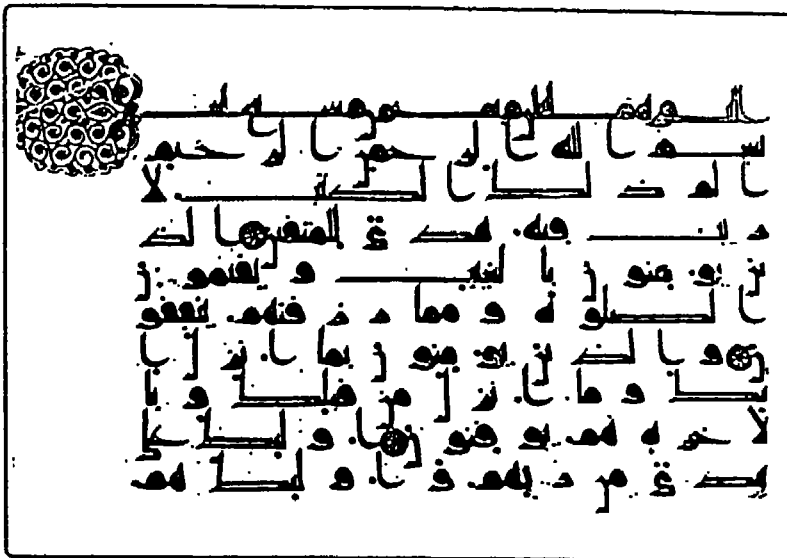 بسم الله الرحمن الرحيم
الم ذلك الكتب لا
ريب فيه هدى للمتقين الذ
ين يؤمنون بالغيب و يقيمون
الصلوة و مما رزقنهم ينفقو
ن و الذين يؤمنون بما انزل ا
ليك و ما انزل من قبلك و با
لاخرة هم يوقنون اولئك على
هدى من ربهم و اولئك هم